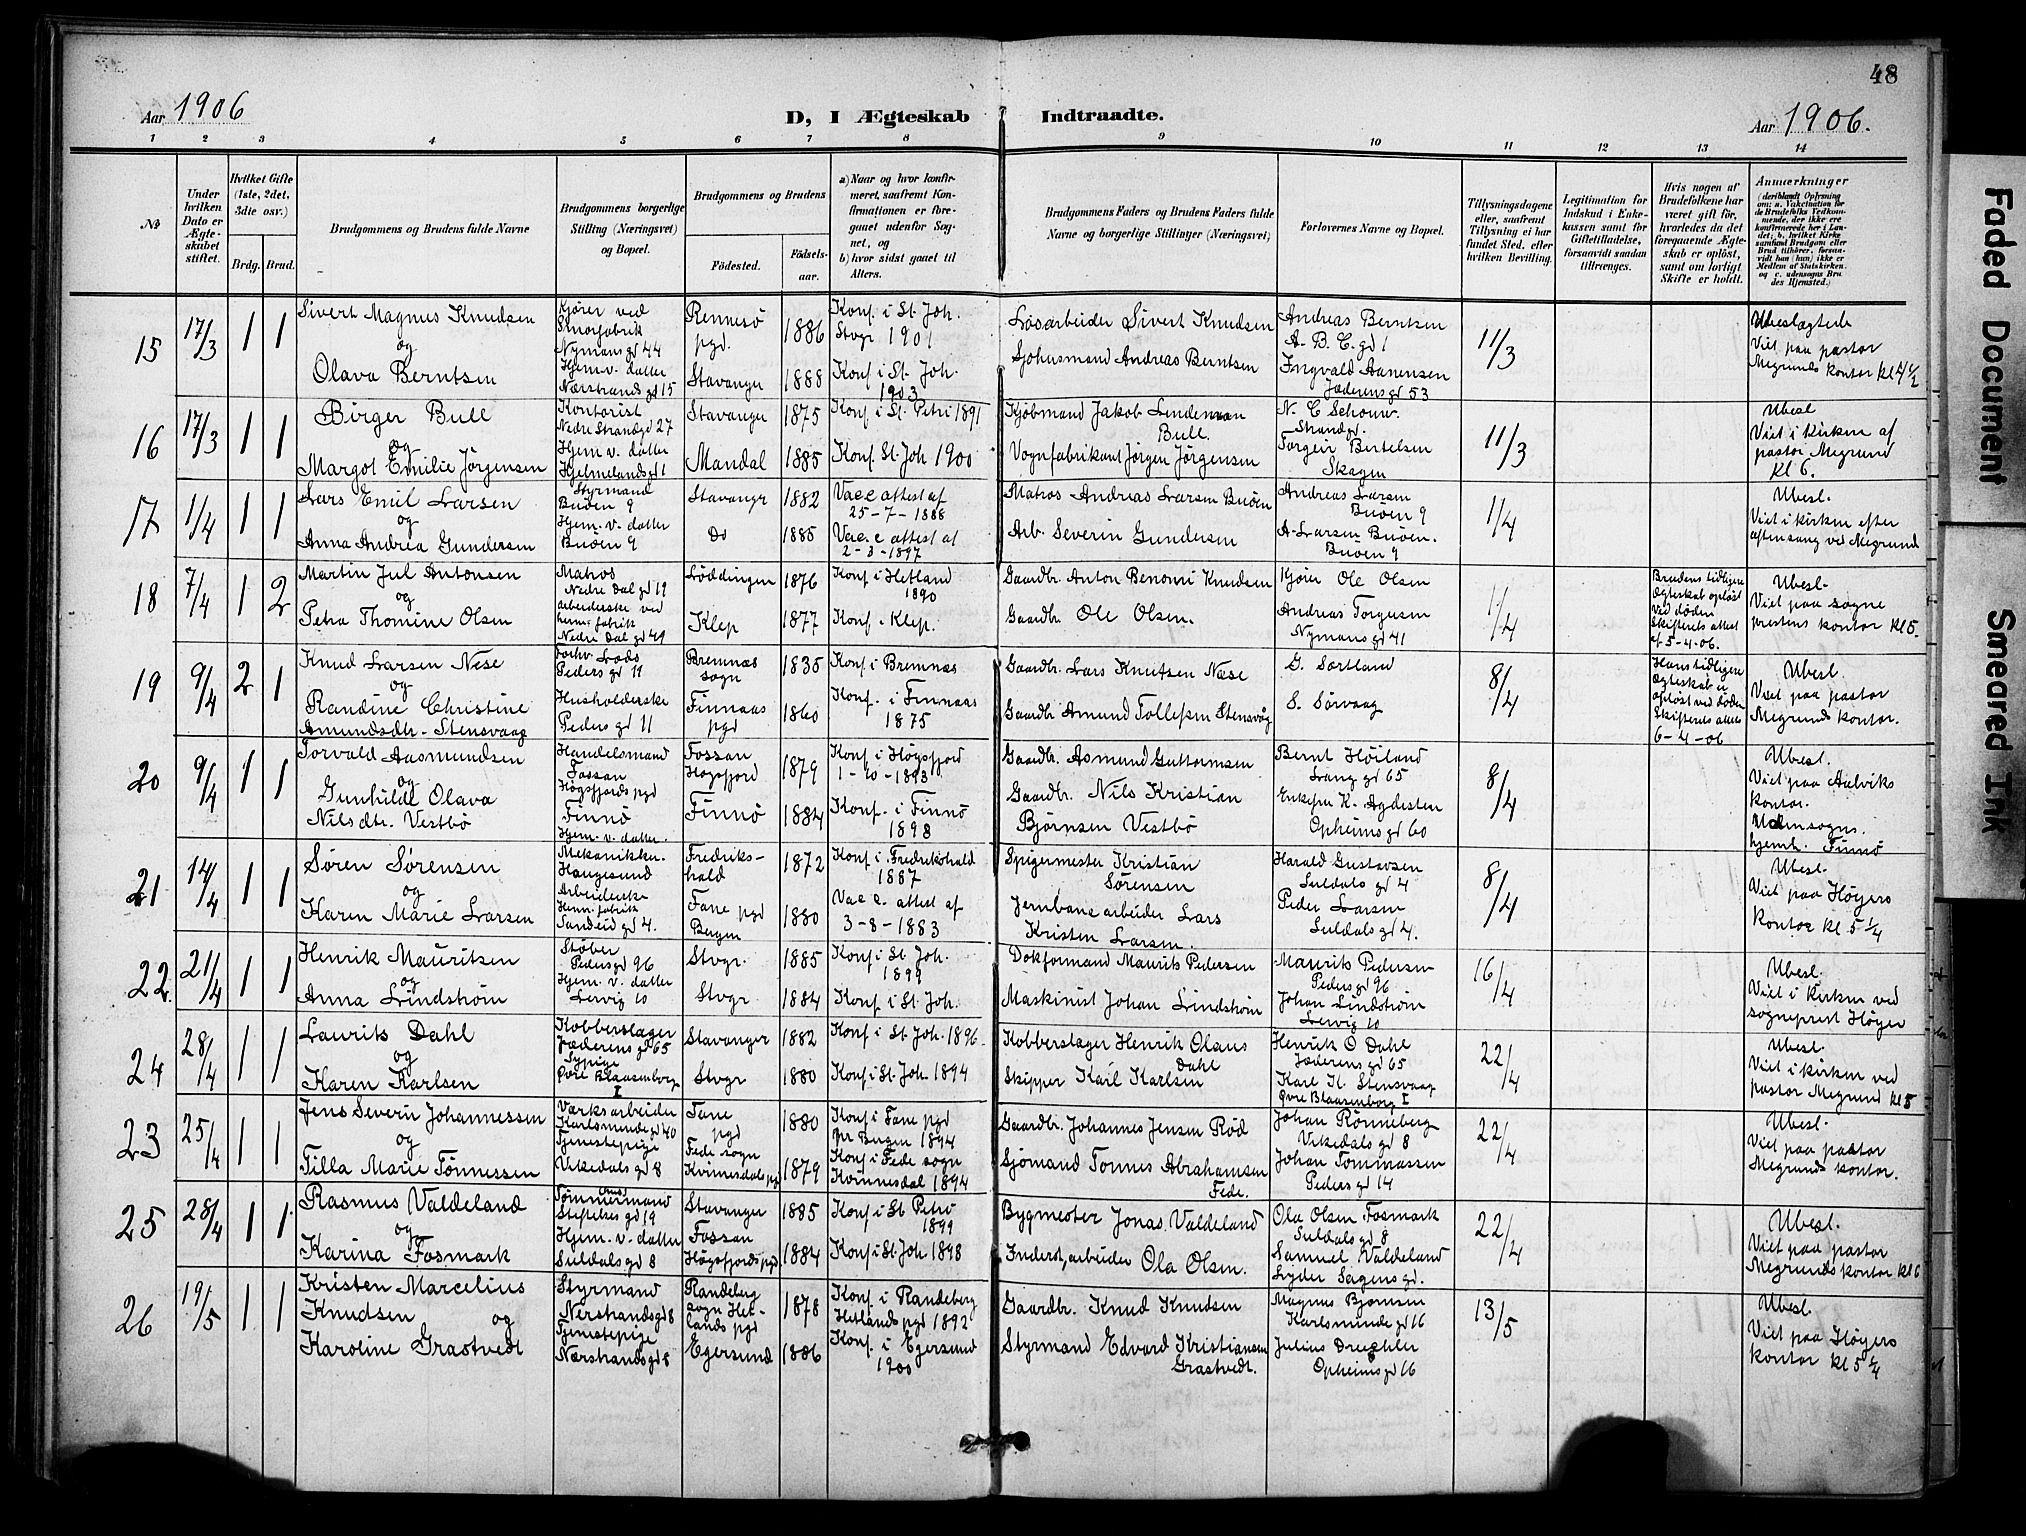 48
Aar 1906
D, I Ægteskab Indtraadte.
Aar 1906.
1 2 3 4 5 6 7 8 9 10 11 12 13 14
No
Under hvilken Dato er Ægteskabet stiftet.
Hvilket Gifte (1ste, 2det, 3die osv.)
Brdg. Brud.
Brudgommens og Brudens fulde Navne
Brudgommens borgerlige Stilling (Næringsvei) og Bopæl.
Brudgommens og Brudens
Fødested. Fødselsaar.
a) Naar og hvor konfirmeret, saafremt Konfirmationen er foregaaet udenfor Sognet, og
b) hvor sidst gaaet til Alters.
Brudgommens Faders og Brudens Faders fulde Navne og borgerlige Stillinger (Næringsvei)
Forlovernes Navne og Bopæl.
Tillysningsdagene eller, saafremt Tillysning ei har fundet Sted, efter hvilken Bevilling.
Legitimation for Indskud i Enkekassen samt for Giftetilladelse, forsaavidt saadan tiltrænges.
Hvis nogen af Brudefolkene har været gift før, hvorledes da det foregaaende Ægteskab er opløst, samt om lovligt Skifte er holdt.
Anmærkninger
(deriblandt Oplysning om: a. Vakcination for de Brudefolks Vedkommende, der ikke ere konfirmerede her i Landet; b. hvilket Kirkesamfund Brudgom eller Brud tilhører, forsaavidt han (hun) ikke er Medlem af Statskirken, og c. udensogns Brudes Hjemsted.)
15 17/3 1 1
Sivert Magnus Knudsen
og
Olava Berntsen
Kjører ved
Smørfabrik
Nymansgd 44
Hjem v. datter
Nærstrandgd 15
Rennesö
pgd.
Stavanger
1886
1888
Konf. i St. Joh.
Stvgr 1901
Konf i St. Joh.
1903
Løsarbeider Sivert Knudsen
Sjohusmand Andreas Berntsen
Andreas Berntsen
A. B. C. gd 1
Ingvald Aanensen
Jæderens gd 53
11/3
Ubeslægtede
Viet paa pastor
Megrunds kontor kl 4 1/2
16 17/3 1 1
Birger Bull
og
Margot Emilie Jörgensen
Kontorist
Nedre Strandgd 27
Hjem v. datter
Hjelmelandsgd 1
Stavanger
Mandal
1875
1885
Konf. i St. Petri 1891
Konf. St. Joh 1900
Kjöbmand Jakob Lindeman
Bull.
Vognfabrikant Jörgen Jörgensen
N. C Schouw.
Strandgd.
Torgeir Bertelsen
Skagen
11/3
Ubesl
Viet i kirken af
pastor Megrund
kl 6.
17 1/4 1 1
Lars Emil Larsen
og
Anna Andrea Gundersen
Styrmand
Buöen 9
Hjem. v. datter
Buöen 9
Stavangr
Do
1882
1885
Vacc attest af
25-7-1888
Vacc attest af
2-3-1897
Matros Andreas Larsen Buöen
Arb. Severin Gundersen
Andreas Larsen
Buöen 9
A. Larsen Buöen.
Buöen 9
1/4
Ubesl.
Viet i kirken efter
aftensang ved Megrund
18 7/4 1 2
Martin Jul Antonsen
og
Petra Thomine Olsen
Matros
Nedre Dalgd 19
arbeiderske ved
herm. fabrik
Nedre Dal gd 49
Löddingen
Klep
1876
1877
Konf i Hetland
1890
Konf. Klep.
Gaardbr. Anton Benomi Knudsen
Gaardbr. Ole Olsen.
Kjörer Ole Olsen
Andreas Torgersen
Nymansgd 41
1/4
Brudens tidligere
Ægteskab oplöst
ved döden
Skifterets attest
af 5-4-06.
Ubesl.
Viet paa sogne
prestens kontor kl 5.
19 9/4 2 1
Knud Larsen Nese
og
Randine Christine
Amundsdtr. Stensvaag
forhv. Lods
Pedersgd 11
Husholderske
Pedersgd 11
Bremnæs
sogn
Finnaas
pgd
1835
1860
Konf i Bremnæs
Konf. i Finnaas
1875
Gaardbr. Lars Knutsen Næse
Gaardbr Amund Tollefsen Stensvåg
G. Sørtland
S. Sørvaag
8/4
Hans tidligere
Ægteskab er
oplöst ved döden
Skifterets attest
6-4-06
Ubesl.
Viet paa pastor
Megrunds kontor.
20 9/4 1 1
Torvald Aasmundsen
og
Gunhilde Olava
Nilsdtr. Vestbö
Handelsmand
Fossan
Högsfjords pgd
Finnö
Hjem. v. datter.
Fossan
Høgsfjord
Finnö
1879
1884
Konf i Högsfjord
1-10-1893
Konf. i Finnö
1898
Gaardbr. Asmund Guttormsen
Gaardbr. Nils Kristian
Björnsen Vestbö
Bernt Høiland
Langgd 65
Enkefru K. Agdesten
Opheimsgd 60
8/4
Ubesl.
Viet paa Aalviks
kontor.
Udensogns.
hjemh. Finnö
21 14/4 1 1
Søren Sørensen
og
Karen Marie Larsen
Mekanikker.
Haugesund
Arbeiderske
Herm. fabrik
Sandeidgd 4.
Fredriks-
hald
Fane pgd
Bergen
1872
1880
Konf i Fredrikshald
1887
Vacc. attest af
3-8-1883
Spigermester Kristian
Sørensen
Jernbanearbeider Lars
Kristen Larsen.
Harald Gustavsen
Suldalsgd 4
Peder Larsen
Suldalsgd 4.
8/4
Ubesl.
Viet paa Höyers
kontor kl 5 1/4
22. 21/4 1 1
Henrik Mauritsen
og
Anna Lindström
Stöber
Pedersgd 96
Hjem. v. datter
Lervig 10
Stvgr.
Stvgr.
1885
1884
Konf. i St. Joh.
1899
Konf. i St. Joh.
Dokformand Maurits Pedersen
Maskinist Johan Lindström
Maurits Pedersen
Pedersgd 96
Johan Lindström
Lervig 10
16/4
Ubesl.
Viet i kirken ved
sogneprest Höyer
24 28/4 1 1
Laurits Dahl
og
Karen Karlsen
Kobberslager
Jæderensgd 65
Sypige
Øvre Blaasenborg
I
Stavanger
Stvgr
1882
1880
Konf i St. Joh. 1896.
Konf i St. Joh 1894
Kobberslager Henrik Olaus
Dahl
Skipper Karl Karlsen
Henrik O Dahl
Jæderensgd 65
Karl K. Stensvaag
Øvre Blaasenborg I
22/4
Ubesl.
Viet i kirken ved
pastor Megrund kl 5
23 25/4 1 1
Jens Severin Johannessen
og
Tilla Marie Tönnessen
Værksarbeider
Karlsmindegd 40
Tjenestepige
Vikedalsgd 8
Fane
pgd
Fede sogn
Kvinesdals pgd
1880
1879
Konf i Fane pgd
pr Bergen 1894
Konf i Fede sogn
Kvinnesdal 1894
Gaardbr. Johannes Jensen Röd
Sjömand Tonnes Abrahamsen
Fede.
Johan Rönneberg
Vikedalsgd 8
Johan Tommassen
Pedersgd 14
22/4
Ubesl.
Viet paa pastor
Megrunds kontor.
25 28/4 1 1
Rasmus Valdeland
og
Karina Fosmark
Tömmermand
Stiftelsesgd 19
Hjem. v. datter
Suldalsgd 8
Stavanger
Fossan
Högsfjords pgd
1885
1884
Konf i St Petri
1899
Konf i St. Joh 1898
Bygmester Jonas Valdeland
Inderst, arbeider Ola Olsen.
Ola Olsen Fosmark
Suldalsgd 8
Samuel Valdeland
Lyder Sagensgd.
22/4
Ubesl.
Viet paa pastor
Megrunds kontor kl 6
26 19/5 1 1
Kristen Marcelius
Knudsen og
Karoline Grastvedt
Styrmand
Nerstrandsgd 8
Tjenestepige
Nærstrandsgd 8
Randeberg
sogn Het-
lands pgd
Egersund
1878
1886
Konf. i Randeberg
Hetlands pgd 1892
Konf. i Egersund
1900
Gaardbr. Knud Knudsen
Styrmand Edvard Kristiansen
Grastvedt.
Magnus Bjornsen
Karlsmindegd 16
Julius Drechsler
Opheimsgd 16
13/5
Ubesl.
Viet paa Höyers
kontor kl 5 1/4
Faded Document
Smeared Ink